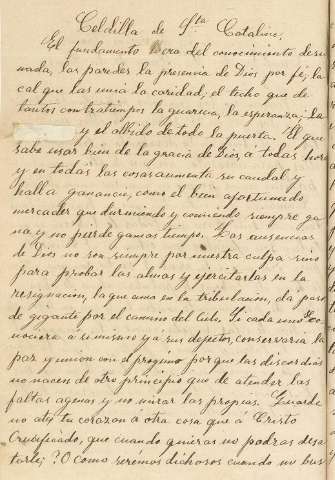 Celdilla de Sta Catalina.
El fundamento sera del conocimiento de su
nada, las paredes la presencia de Dios por fé; la
cal que las unia la caridad; el techo que de
tantos contratiempos la guarecia, la esperanza; La
y el albido de todo la puerta. El que
sabe usar bien de la gracia de Dios á todas horas
y en todas las cosas aumenta su caudal y
halla ganancia, como el buen afortunado
mercader que durmiendo y comiendo siempre ga
na y no pierde gamas tiempo. Las ausencias
de Dios no son siempre por nuestra culpa sino
para probar las almas y ejercitarlas en la
resignacion, la que ama en la tribulacion, da paso
de gigante por el camino del Cielo. Si cada uno co
nociera á si mismo ya sus defectos, conservaria la
paz y union con el progimo porque las discordias
no nacen de otro principio que de atender las
faltas agenas y no mirar las propias. Guarde
no ates tu corazon á otra cosa que á Cristo
Crucificado, que cuando quieras no podras desa
tarle; ? O como seremos dichosos cuando no bus